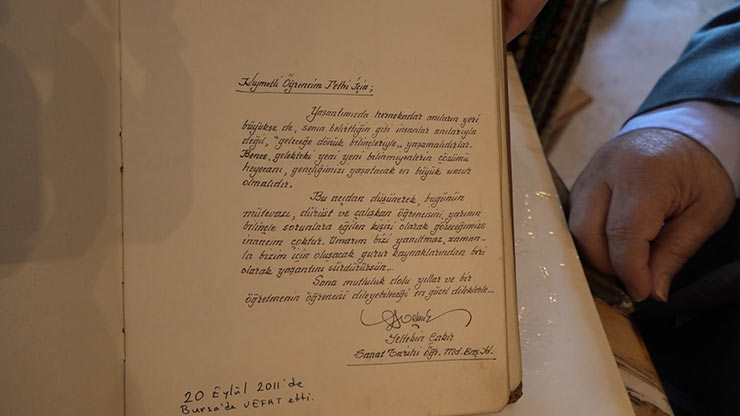 Kıymetli Öğrencim Fethi İçin;
Yaşantımızda hernekadar anıların yeri
büyükse de, senin belirttiğin gibi insanlar anılarıyla
değil, "geleceğe dönük bilinçleriyle" yaşamalıdırlar.
Bence, gelekteki yeni yeni bilinmiyenlerin çözümü
heyecanı, gençliğimizi yaşatacak en büyük unsur
olmalıdır.
Bu açıdan düşünerek, bugünün
mütevazı, dürüst ve çalışkan öğrencisini, yarının
bilinçle sorunlara eğilen kişisi olarak göreceğimize
inancım çoktur. Umarım bizi yanıltmaz, zaman-
la bizim için oluşacak gurur kaynaklarından biri
olarak yaşantını sürdürürsün...
Sana mutluluk dolu yıllar ve bir
öğretmenin öğrencisi dileyebileceği en güzel dileklerle...
Yeltekin Çakır
Sanat Tarihi Öğr. Md. Baş Yd.
20 Eylül 2011'de
Bursa'da VEFAT etti.